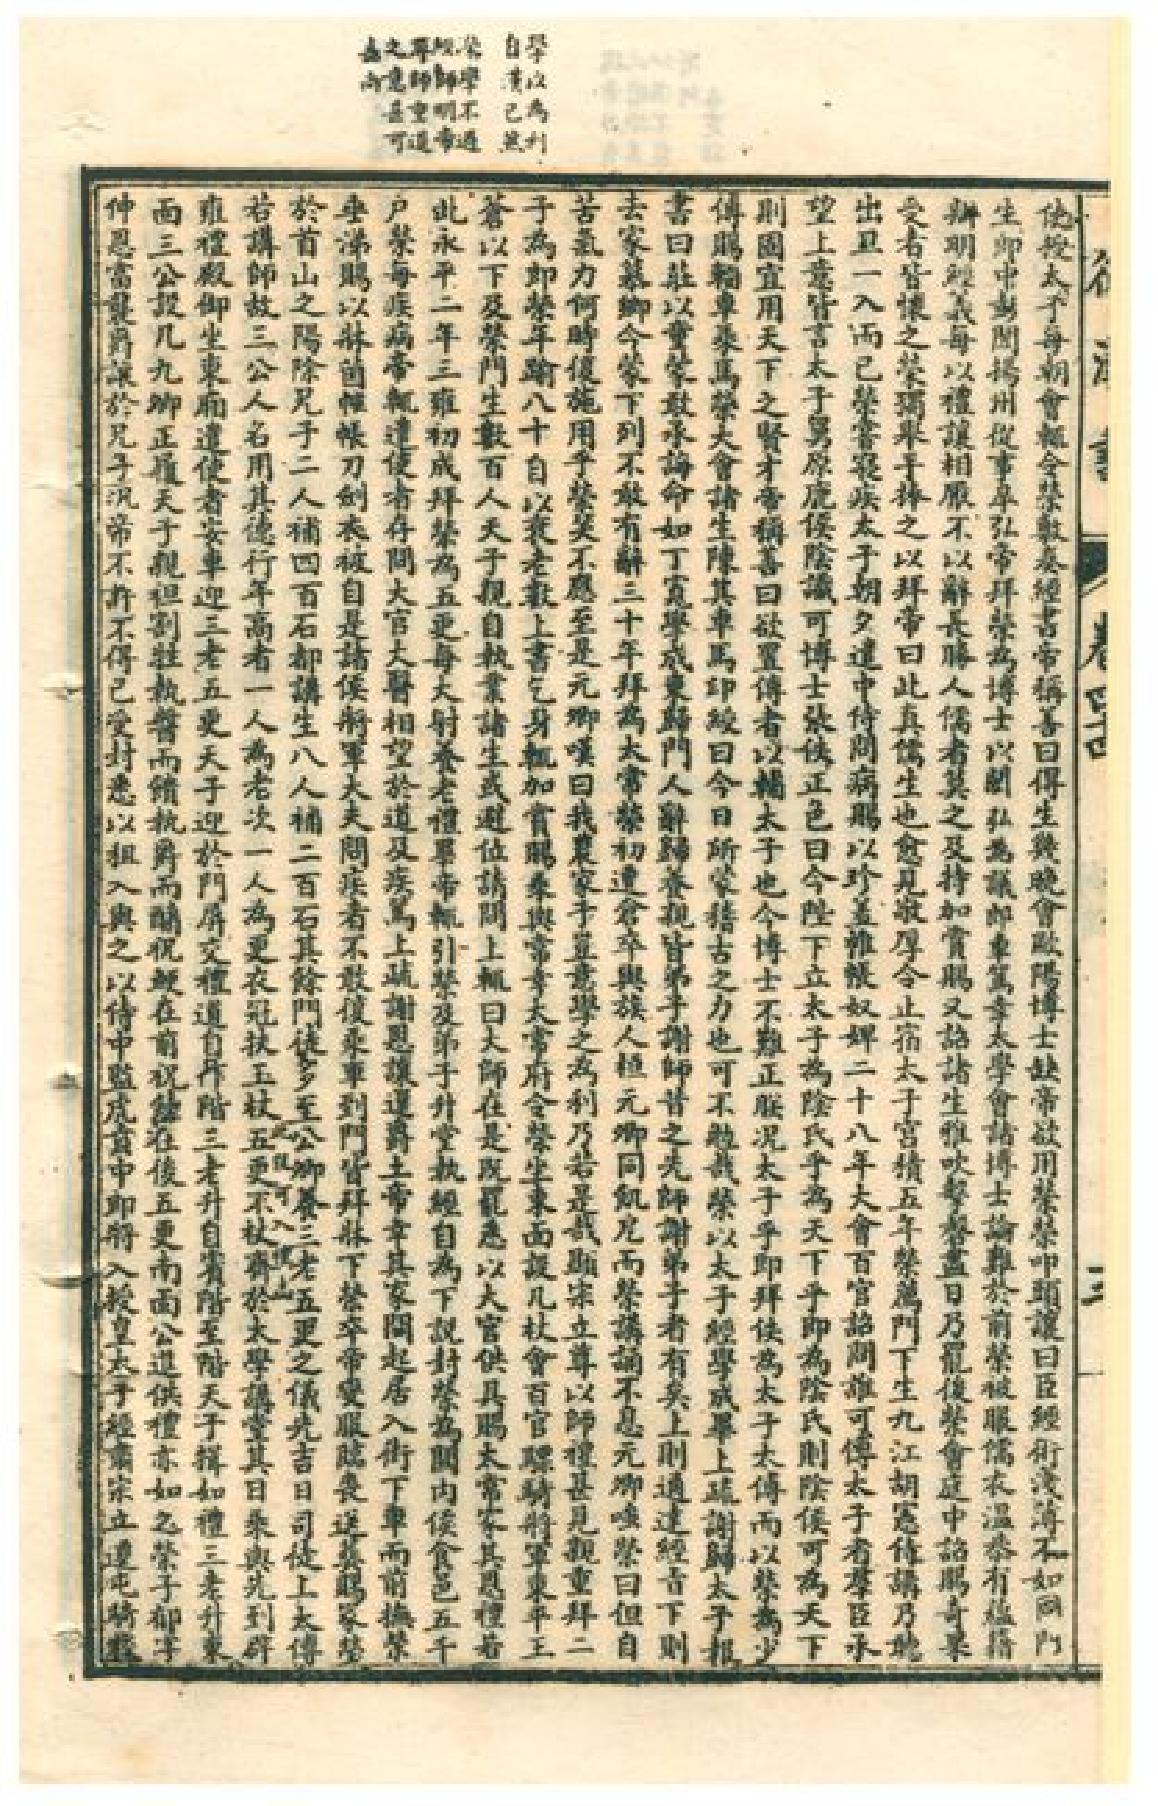 學以為利
自漢已然
榮學不過
經師明帝
尊師重道
之意甚可
嘉尚
後漢書
使授太子每朝會輒令榮敷奏經書帝稱善曰得生幾晚會歐陽博士缺帝欲用榮榮叩頭讓曰臣經術淺薄不如同門
生郎中彭閎揚州從事皋弘帝拜榮為博士以閎弘為議郎車駕幸太學會諸博士論難於前榮被服儒衣溫恭有蘊藉
辯明經義每以禮讓相厭不以辭長勝人儒者莫之及特加賞賜又詔諸生雅吹擊磬盡日乃罷後榮會庭中詔賜奇果
受者皆懷之榮獨舉手捧之以拜帝曰此真儒生也愈見敬厚令止宿太子宮積五年榮薦門下生九江胡憲侍講乃聽
出旦一入而已榮嘗寢疾太子朝夕遣中傅問病賜以珍羞帷帳奴婢二十八年大會百官詔問誰可傅太子者羣臣承
望上意皆言太子舅原鹿侯陰識可博士張佚正色曰今陛下立太子為陰氏乎為天下乎即為陰氏則陰侯可為天下
則固宜用天下之賢才帝稱善曰欲置傅者以輔太子也今博士不難正朕況太子乎即拜佚為太子太傅而以榮為少
傅賜輜車乘馬榮大會諸生陳其車馬印綬曰今日所蒙稽古之力也可不勉哉榮以太子經學成畢上疏謝歸太子報
書曰莊以童蒙敢承誨命如丁寬學成東歸門人辭歸養親皆弟子謝師昔之先師謝弟子者有矣上則通達經旨下則
去家慕鄉今蒙下列不敢有辭三十年拜為太常榮初遭倉卒與族人桓元卿同飢戹而榮講誦不息元卿嗤榮曰但自
苦氣力何時復施用乎榮笑不應至是元卿嘆曰我農家子豈意學之為利乃若是哉顯宗立尊以師禮甚見親重拜二
子為郎榮年踰八十自以衰老數上書乞身輒加賞賜乘輿常幸太常府令榮坐東面設几杖會百官驃騎將軍東平王
蒼以下及榮門生數百人天子親自執業諸生或避位請問上輒曰大師在是既罷悉以大官供具賜太常家其恩禮若
此永平二年三雍初成拜榮為五更每大射養老禮畢帝輒引榮及弟子升堂執經自為下說封榮為關內侯食邑五千
戶榮每疾病帝輒遣使者存問大官大醫相望於道及疾篤上疏謝恩讓還爵土帝幸其家問起居入街下車而前撫榮
垂涕賜以牀茵帷帳刀劍衣被自是諸侯將軍大夫問疾者不敢復乘車到門皆拜牀下榮卒帝變服臨喪送葬賜冢塋
於首山之陽除兄子二人補四百石都講生八人補二百石其餘門徒多至公卿養三老五更之儀先吉日司徒上太傅
若講師故三公人名用其德行年高者一人為老次一人為更衣冠扶玉杖五更不杖齋於大學講堂其日乘輿先到辟
雍禮殿御坐東廂遣使者安車迎三老五更天子迎於門屏交禮道自阼階三老升自賓階至階天子揖如禮三老升東
面三公設几九卿正履天子親袒割牲執醬而饋執爵而酳祝鯁在前祝饐在後五更南面公進供禮亦如之榮子郁字
仲恩當襲爵讓於兄子汎帝不許不得已受封悉以租入與之以侍中監虎賁中郎將入授皇太子經肅宗立遷屯騎